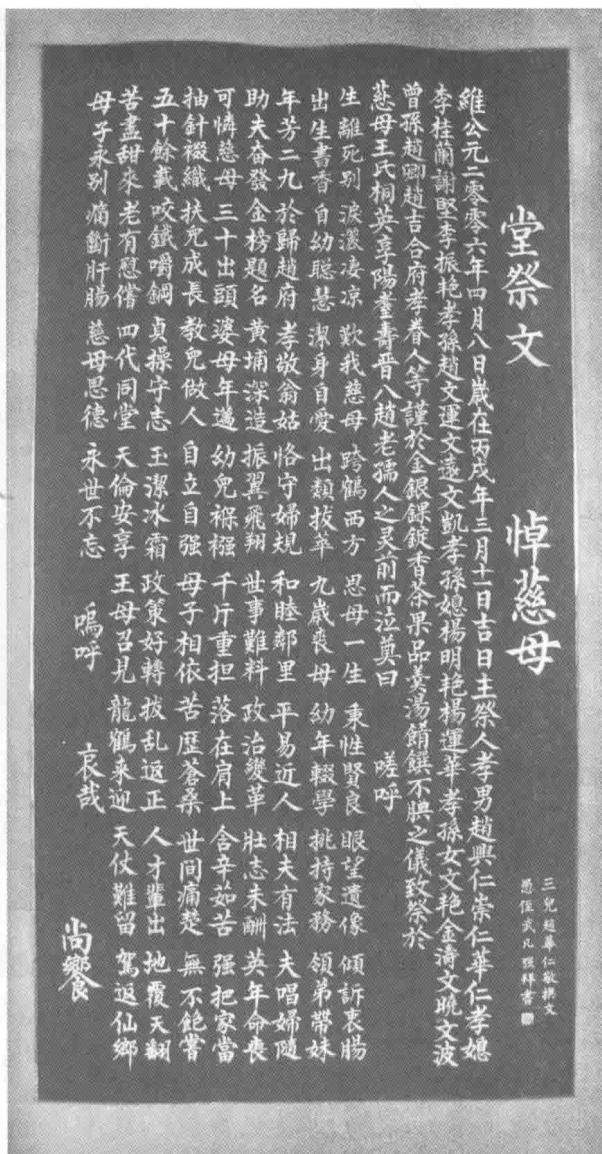 堂祭文 悼慈母
三兒趙華仁敬撰文
愚侄武凡强拜書
維公元二零零六年四月八日歲在丙戌年三月十一日吉日主祭人孝男趙興仁崇仁華仁孝媳
李桂蘭謝堅李振艳孝孫趙文運文遠文凱孝孫媳楊明艳楊運華孝孫女文艳金濤文曉文波
曾孫趙卿趙吉合府孝眷人等謹於金銀錁錠香茶果品羹湯餚饌不腆之儀致祭於
慈母王氏桐英享陽耋壽晉八趙老孺人之灵前而泣奠曰 嗟呼
生離死别 淚灑凄凉 歎我慈母 跨鶴西方 思母一生 秉性賢良 眼望遺像 傾訴衷腸
出生書香 自幼聪慧 潔身自愛 出類拔萃 九歲喪母 幼年輟學 挑持家務 領弟帶妹
年芳二九 於歸趙府 孝敬翁姑 恪守婦規 和睦鄰里 平易近人 相夫有法 夫唱婦隨
助夫奋發 金榜題名 黄埔深造 振翼飛翔 世事難料 政治變革 壯志未酬 英年命喪
可憐慈母 三十出頭 婆母年邁 幼兒褓襁 千斤重担 落在肩上 含辛茹苦 强把家當
抽針裰織 扶兒成長 教兒做人 自立自强 母子相依 苦歷蒼桑 世間痛楚 無不飽嘗
五十餘載 咬鐵嚼鋼 貞操守志 玉潔冰霜 政策好轉 拨乱返正 人才輩出 地覆天翻
苦盡甜來 老有慰偕 四代同堂 天倫安享 王母召見 龍鶴来迎 天仗難留 駕返仙鄉
母子永别 痛斷肝腸 慈母恩德 永世不忘 嗚呼 哀哉 尚饗